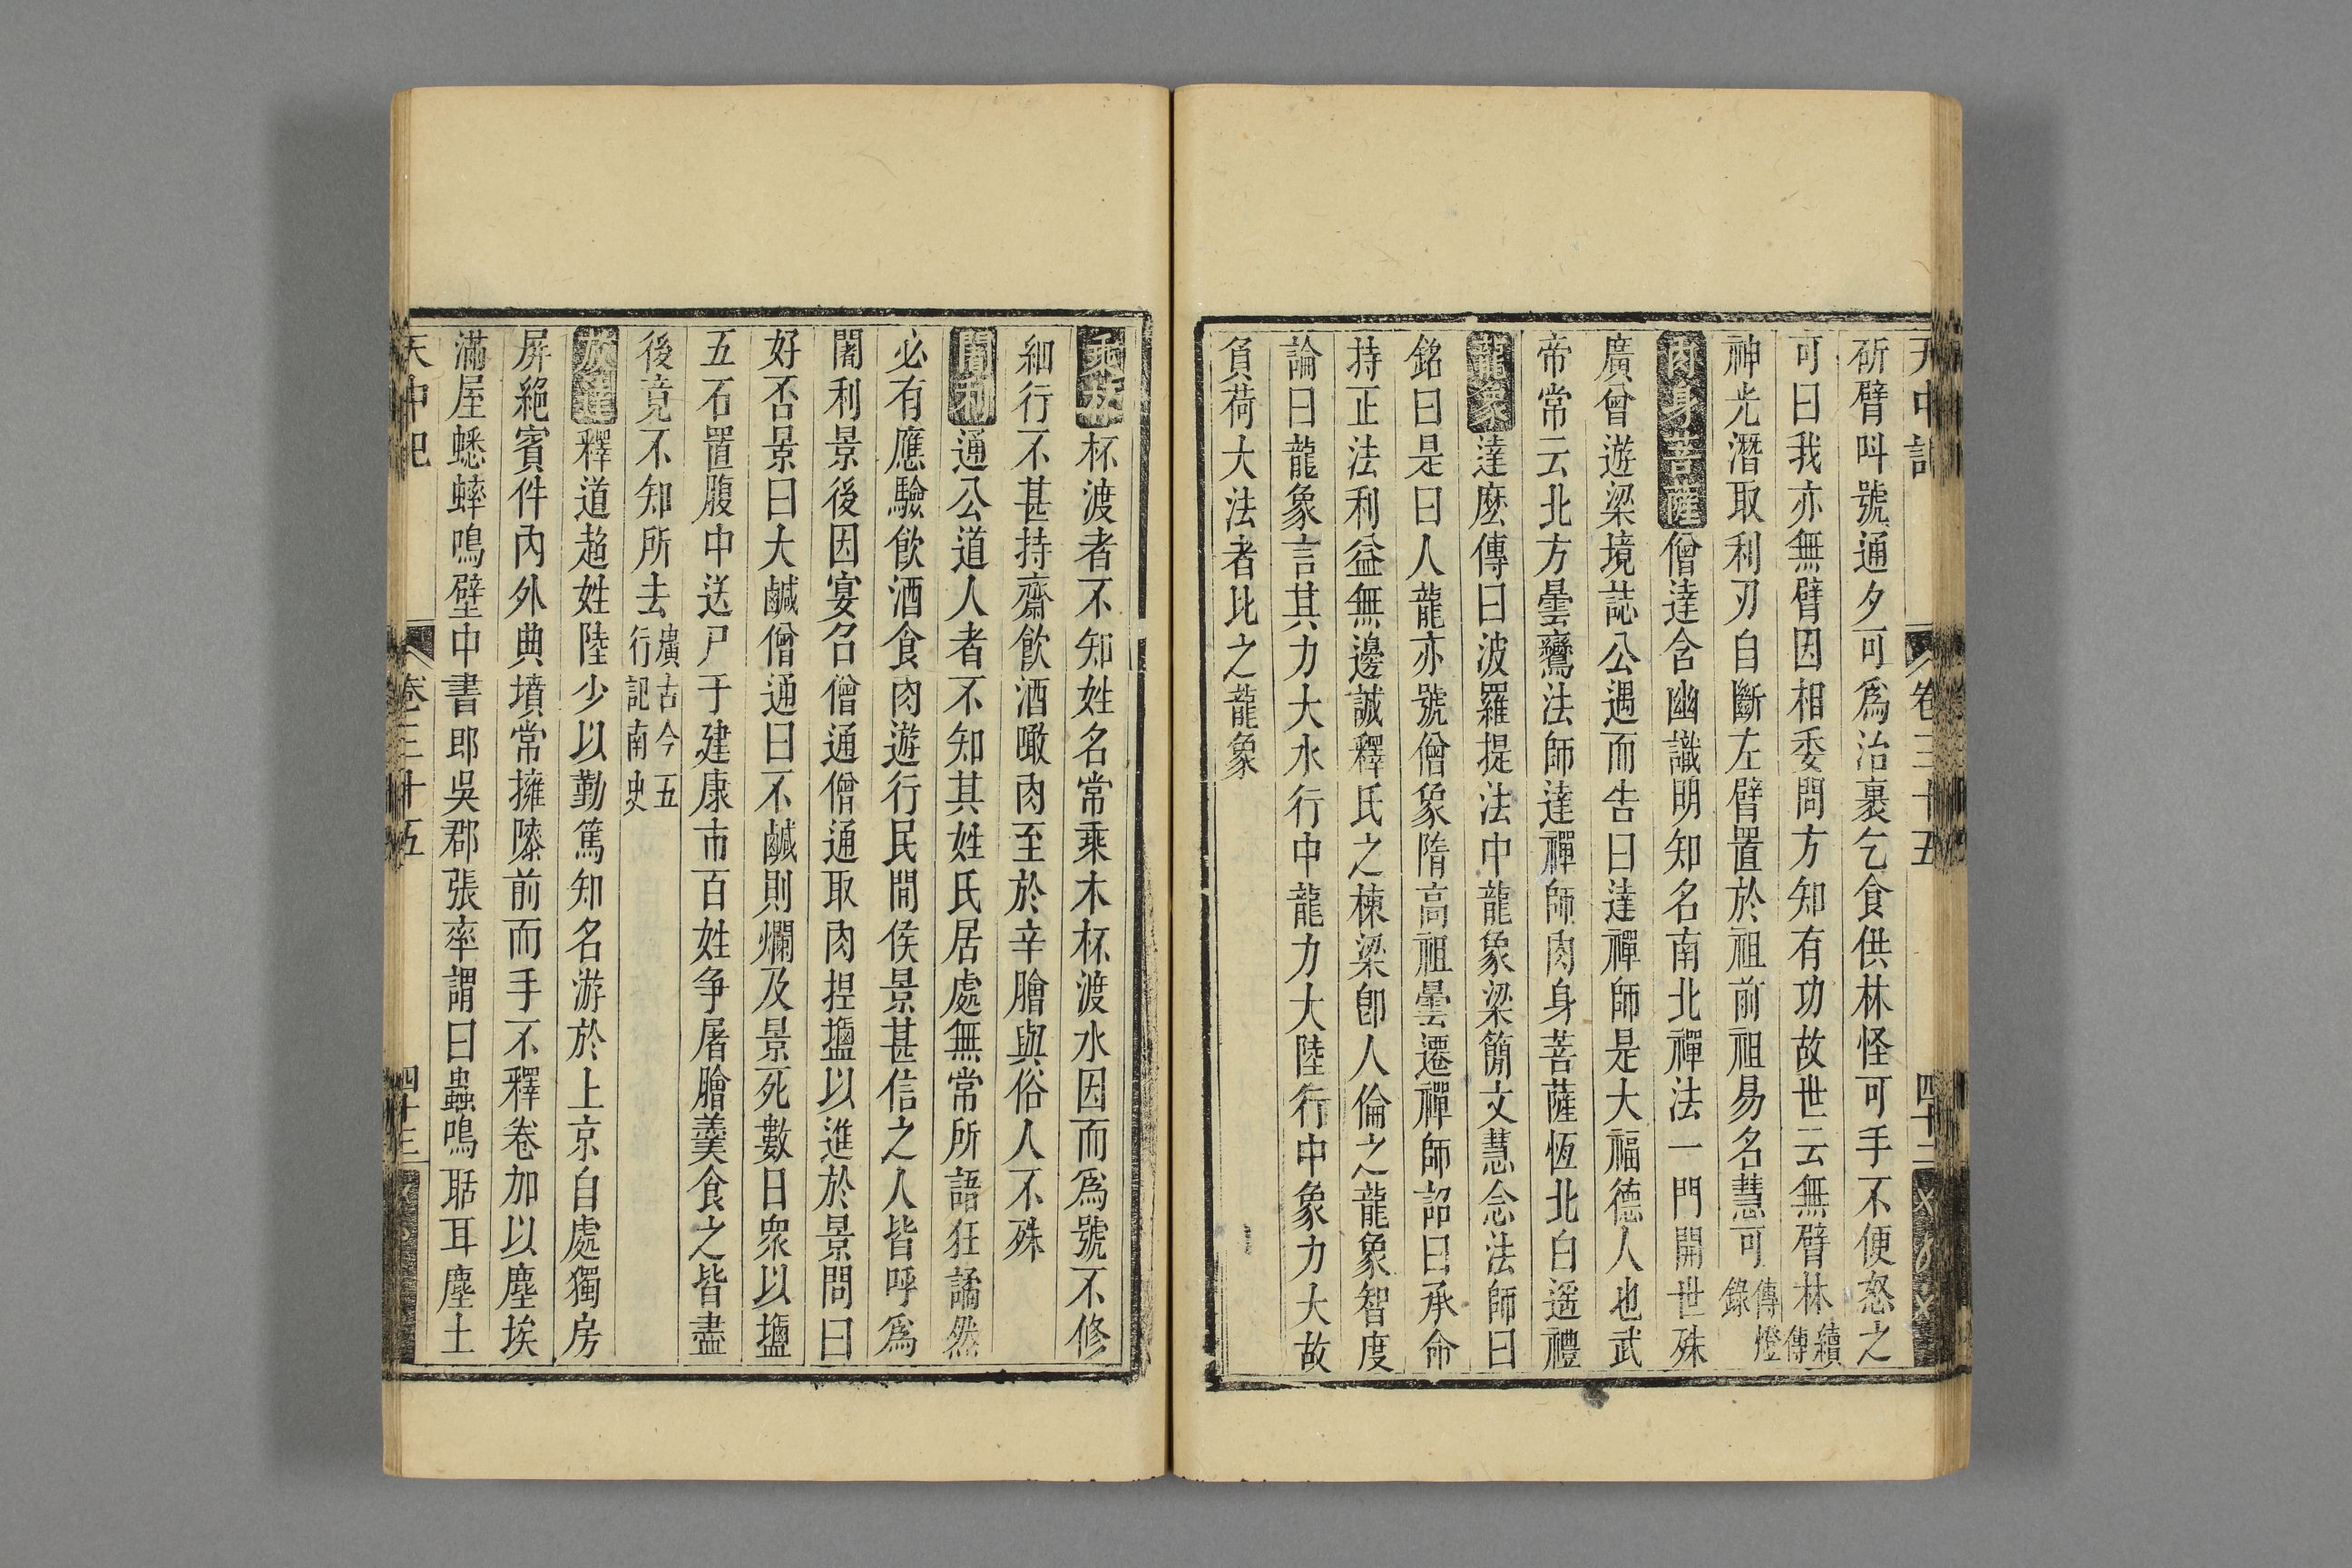 天中記 卷三十五 四十二
斫臂呌號通夕可爲治裹乞食供林怪可手不便怒之
可曰我亦無臂因相委問方知有功故世云無臂林續傳
神光潛取利刃自斷左臂置於祖前祖易名慧可傳燈錄
肉身菩薩僧達含幽識明知名南北禪法一門開世殊
廣曾遊梁境誌公遇而告曰達禪師是大福德人也武
帝常云北方曇鸞法師達禪師肉身菩薩恆北白遥禮
龍象達麽傳曰波羅提法中龍象梁簡文慧念法師曰
銘曰是曰人龍亦號僧象隋高祖曇遷禪師詔曰承命
持正法利益無邊誠釋氏之棟梁卽人倫之龍象智度
論曰龍象言其力大水行中龍力大陸行中象力大故
負荷大法者比之龍象
乘杯杯渡者不知姓名常乘木杯渡水因而爲號不修
細行不甚持齋飮酒噉肉至於辛膾與俗人不殊
闍利通公道人者不知其姓氏居處無常所語狂譎然
必有應驗飮酒食肉遊行民間侯景甚信之人皆呼爲
闍利景後因宴召僧通僧通取肉揑鹽以進於景問曰
好否景曰大鹹僧通曰不鹹則爛及景死數日衆以鹽
五石置腹中送尸于建康市百姓争屠膾羹食之皆盡
後竟不知所去廣古今五行記南史
放達釋道超姓陸少以勤篤知名游於上京自處獨房
屏絶賓伴內外典墳常擁膝前而手不釋卷加以塵埃
滿屋蟋蟀鳴壁中書郎吳郡張率謂曰蟲鳴聒耳塵土
天中記 卷三十五 四十三